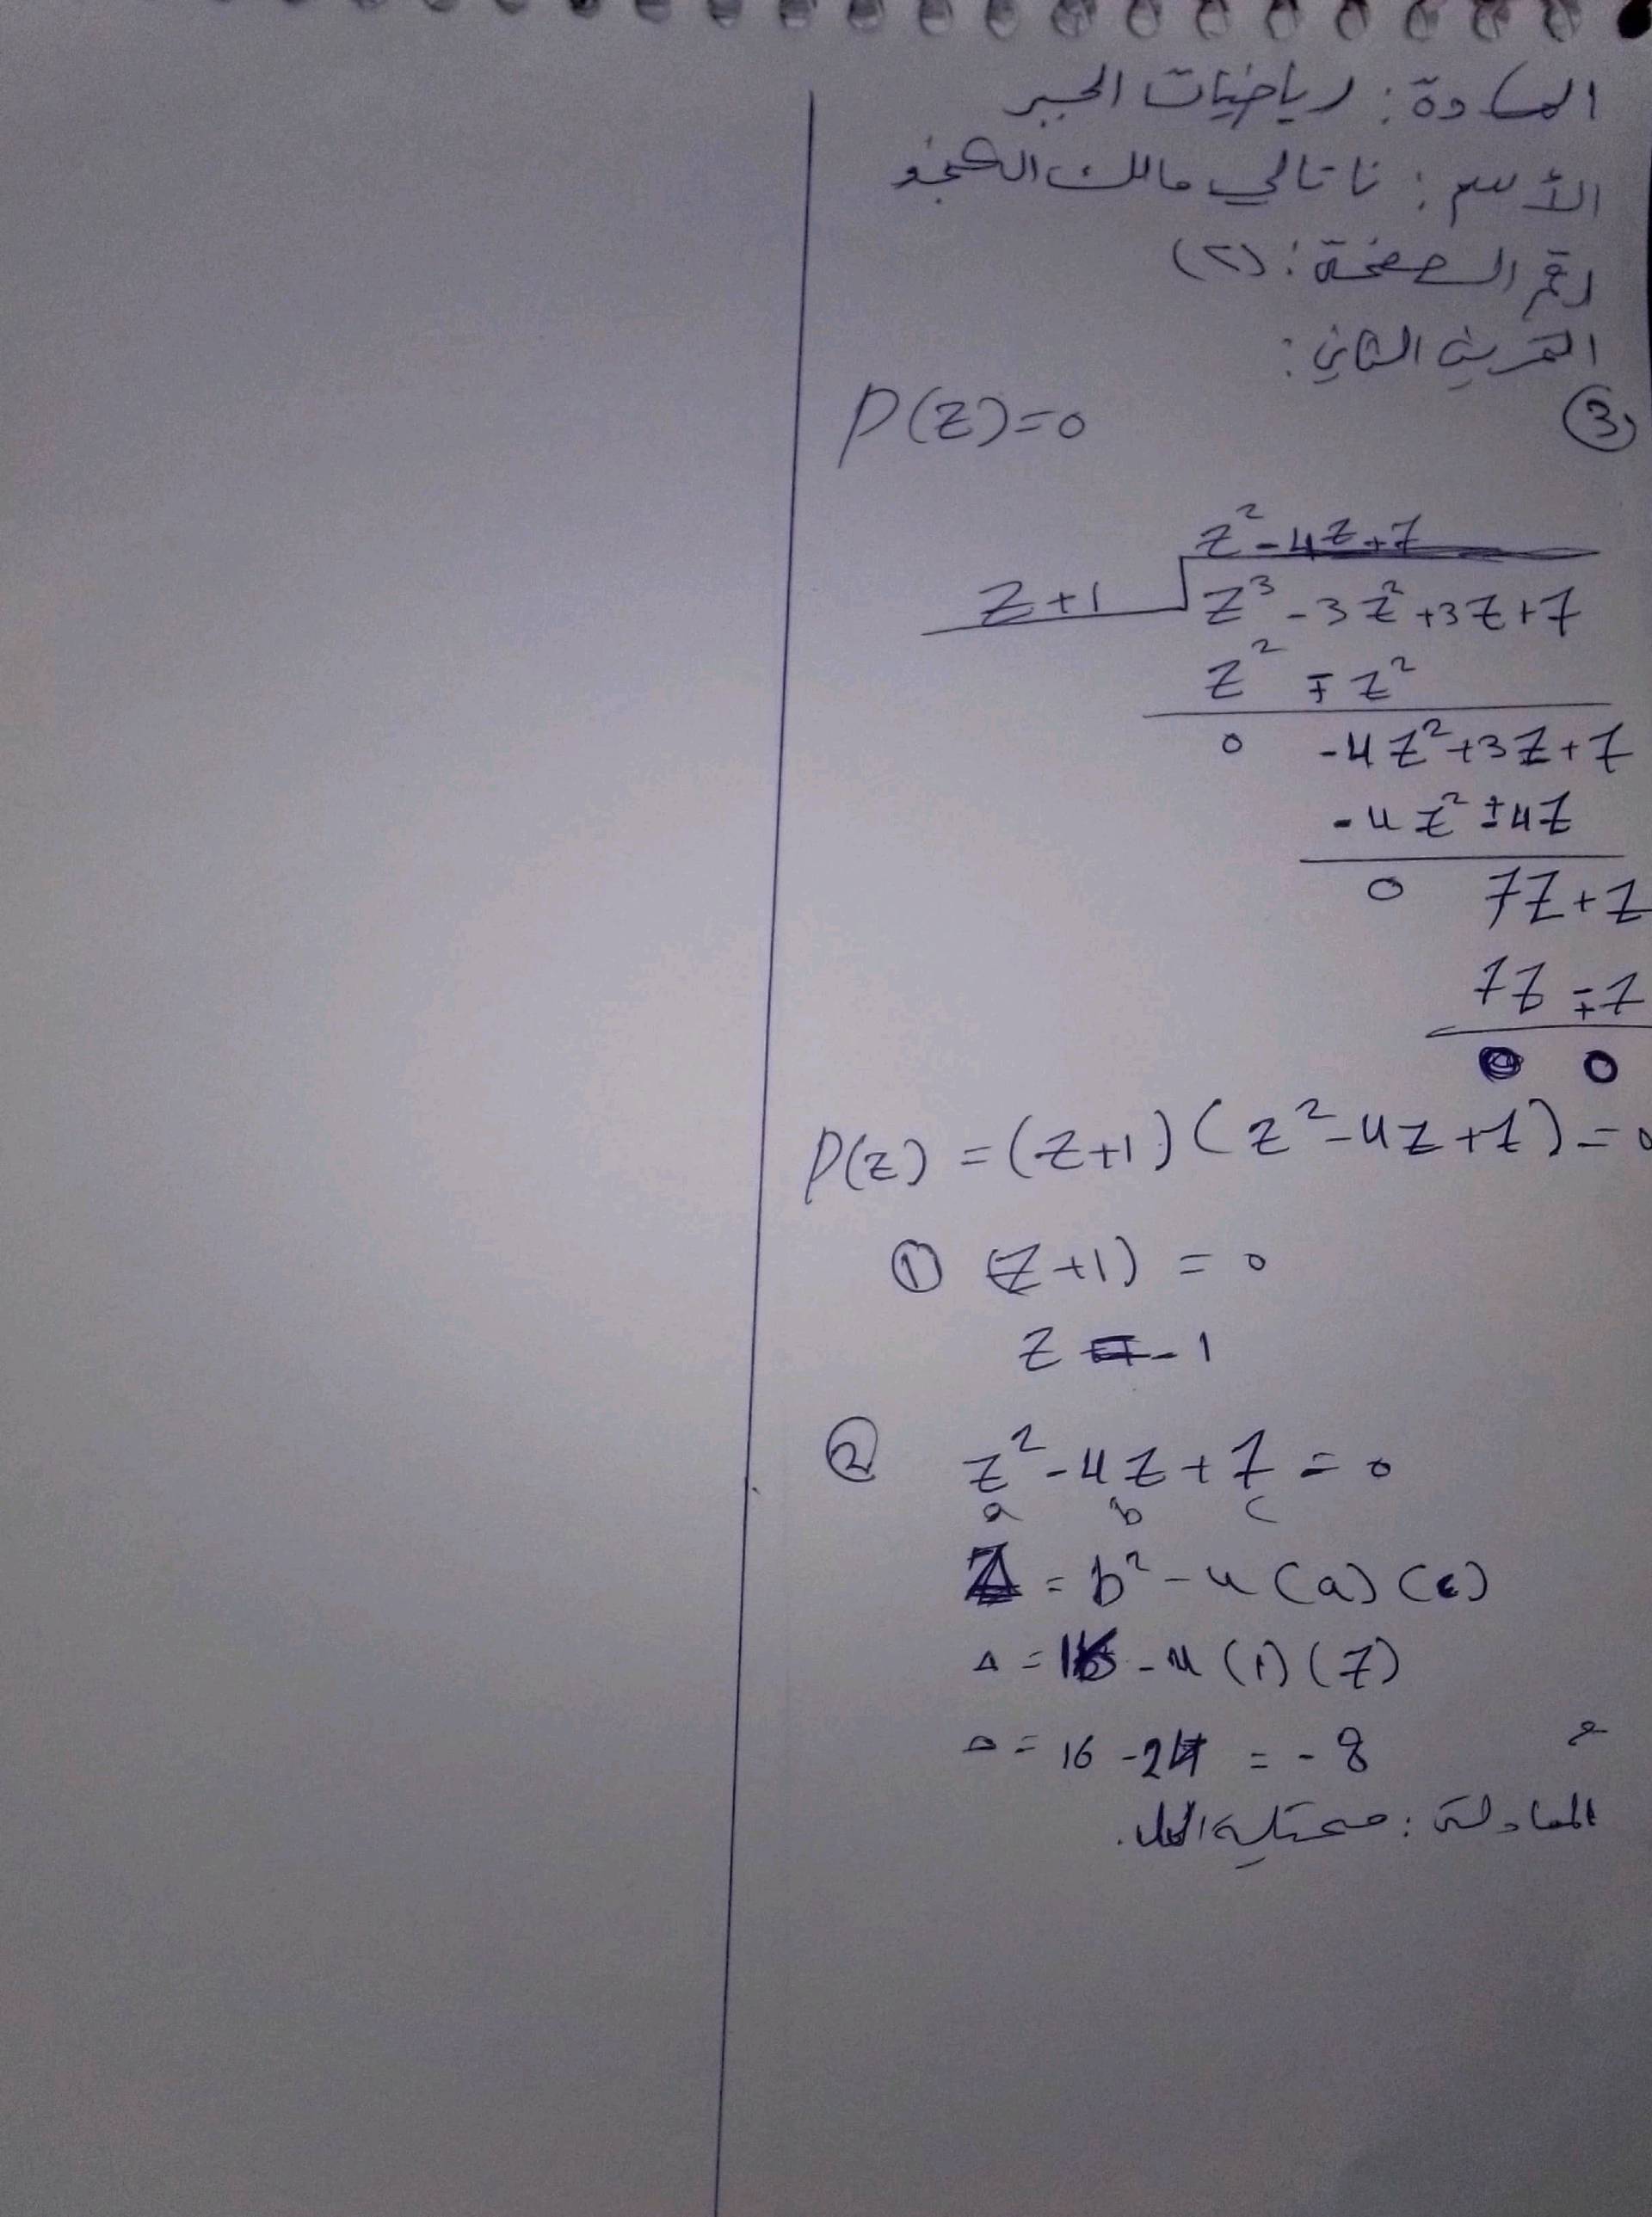 المادة: رياضيات الجبر
الأسم: ناتالي مالك
رقم الصفحة: (٢)
التمرين الثاني:
③ P(Z)=0
z²-4z+7
z+1 z³-3z²+3z+7
z² ∓z²
0 -4z²+3z+7
-4z² ±4z
0 7z+7
7z ∓7
0 0
P(z) = (z+1)(z²-4z+7)=0
① (z+1) = 0
z = -1
② z²-4z+7=0
a b c
Δ = b²-4(a)(c)
Δ = 16-4(1)(7)
Δ = 16-24 = -8
المعادلة: